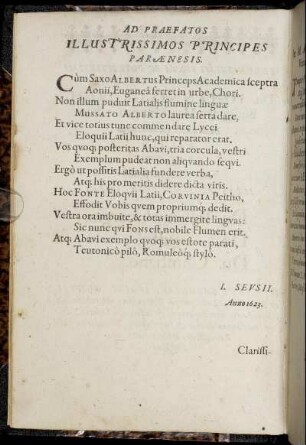 AD PRAEFATOS
ILLUSTRISSIMOS PRINCIPES
PARÆNESIS.
Cùm SAXO ALBERTUS Princeps Academica sceptra
Aonii, Euganeâ ferret in urbe, Chori.
Non illum puduit Latialis flumine linguæ
MUSSATO ALBERTO laurea serta dare,
Et vice totius tunc commendare Lycei
Eloquii Latii hunc, qui reparator erat.
Vos qvoq; posteritas Abavi, tria corcula, vestri
Exemplum pudeat non aliqvando seqvi.
Ergò ut possitis Latialia fundere verba,
Atq; his pro meritis didere dicta viris.
Hoc FONTE Eloqvii Latii, CORVINIA Peitho,
Effodit Vobis qvem propriumq; dedit.
Vestra ora imbuite, & totas immergite lingvas:
Sic nunc qvi FONS est, nobile Flumen erit.
Atq; Abavi exemplo qvoq; vos estote parati,
Teutonicò pilò, Romuleòq; stylò.
I. SEUSII.
Anno 1623.
Clarissi-